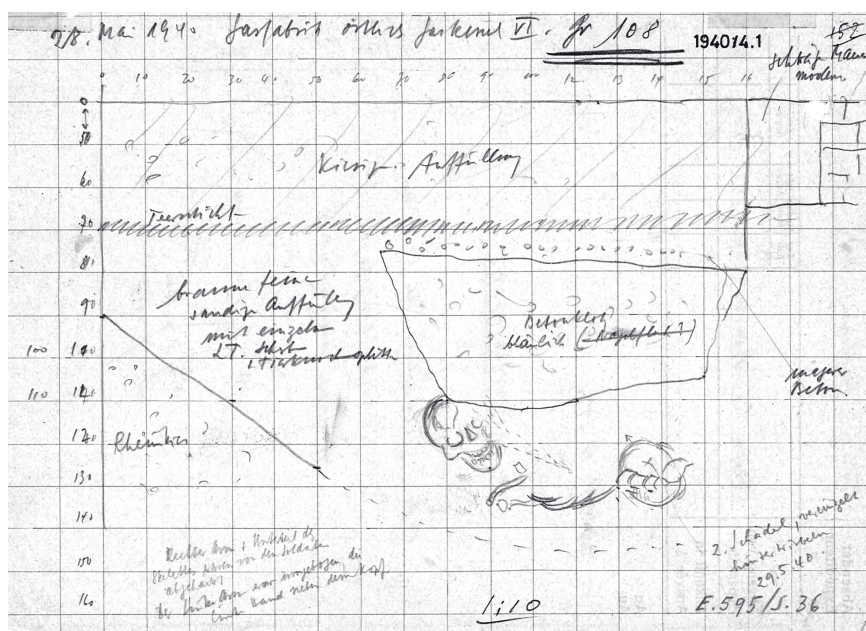 28. Mai 1940. Gasfabrik östlich Gaskessel VI. Gr 108
194014.1
+52
schräge Mauer
modern
0 10 20 30 40 50 60 70 80 90 100 11 12 13 14 15 16
0
50
60
70
80
90
100
110
120
130
140
150
160
100
110
Kiesige Auffüllung
Teerschicht
braune feine
sandige Auffüllg
mit einzeln
LT. Scherb
+ Tierknochensplitter
Betonklotz
bläulich (Nagelfluh?)
magerer
Beton
Rheinkies
Rechter Arm + Unterteil des
Skelettes waren von den Soldaten
abgehauen
Der linke Arm war umgebogen, die
linke Hand neben dem Kopf
2. Schädel, vereinzelt
29.5.40.
1:10
E. 595/S. 36